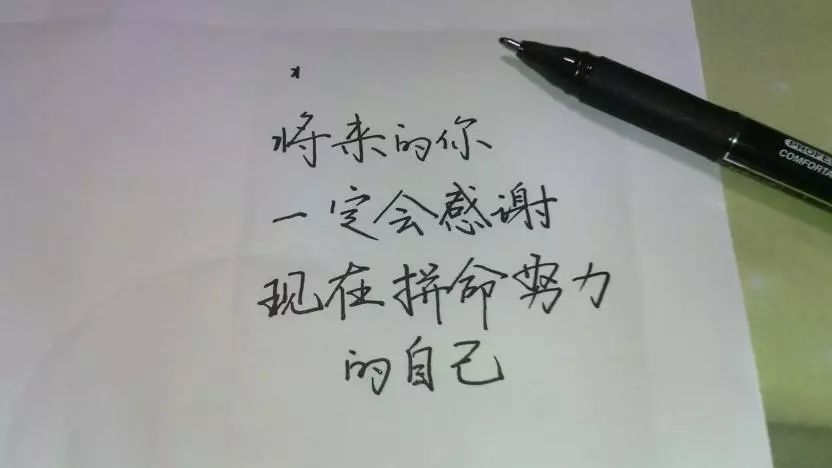 将来的你
一定会感谢
现在拼命努力
的自己
PROFE
COMFORTA